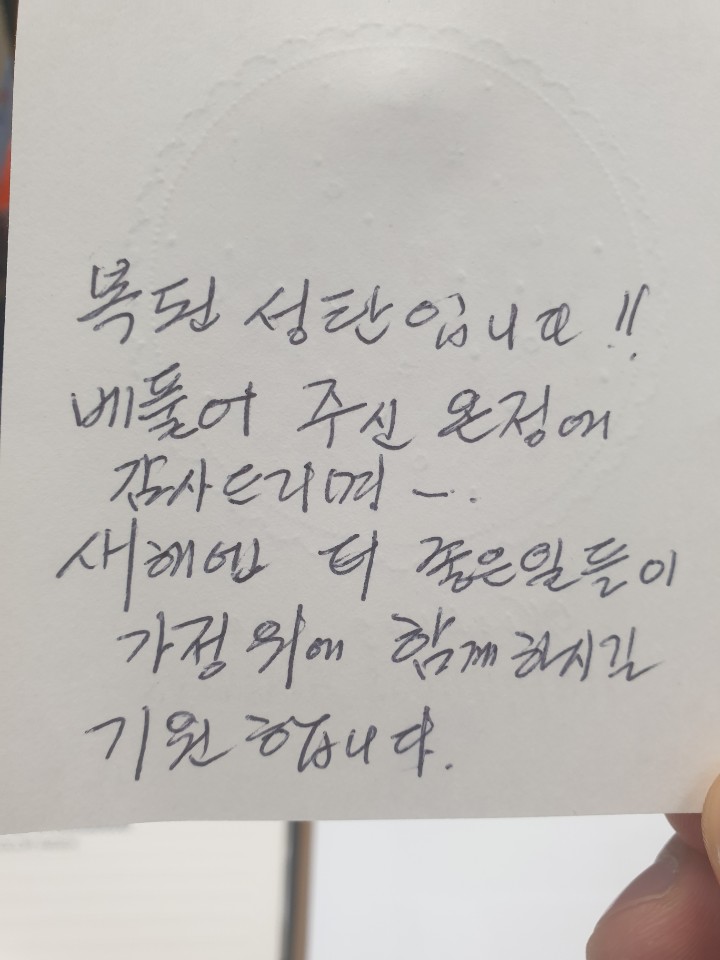 복된 성탄입니다!!
베풀어 주신 온정에
감사드리며 -.
새해엔 더 좋은일들이
가정위에 함께하시길
기원합니다.